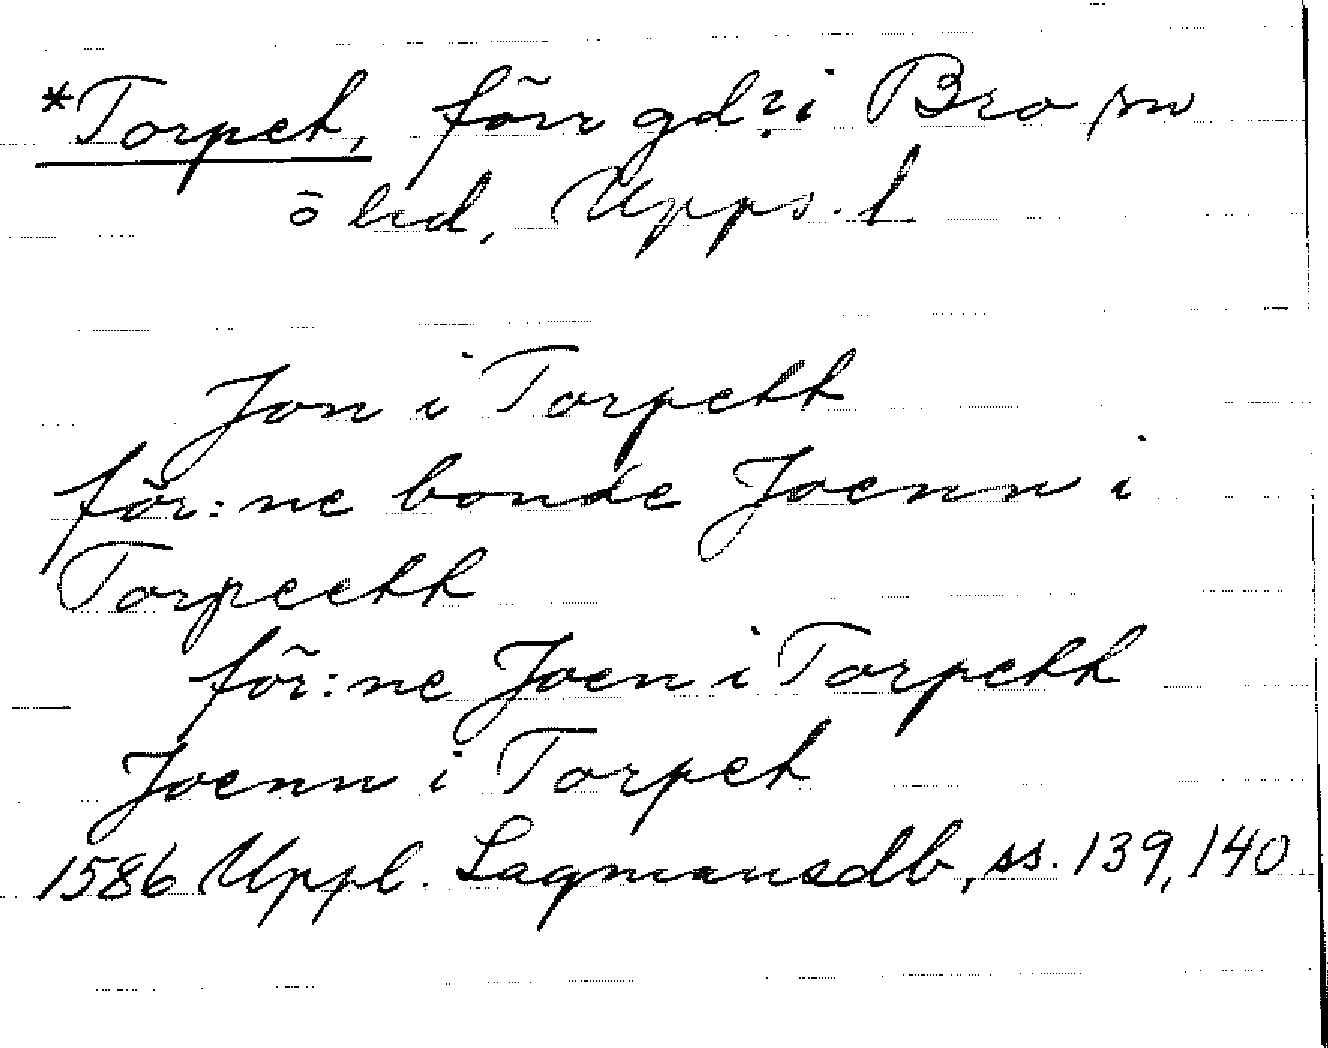 *Torpet, förr gd? i Bro sn
ö hd, Upps. l
Jon i Torpett
för:ne bonde Joenn i
Torpeett
för:ne Joen i Torpett
Joenn i Torpet
1586 Uppl. Lagmansdb, ss. 139, 140